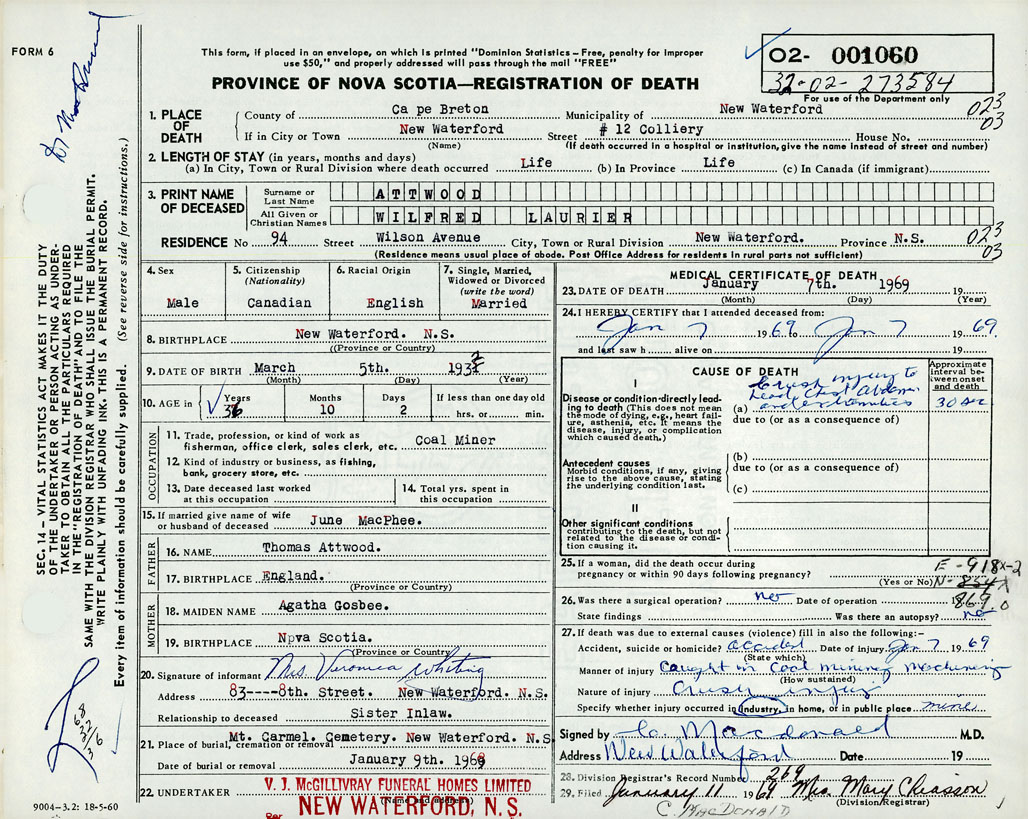 FORM 6
This form, if placed in an envelope, on which is printed "Dominion Statistics – Free, penalty for improper
use $50," and properly addressed will pass through the mail "FREE"
PROVINCE OF NOVA SCOTIA—REGISTRATION OF DEATH
02- 001060
32-02-273584
For use of the Department only
023
03
1. PLACE OF DEATH
County of Ca pe Breton Municipality of New Waterford
If in City or Town New Waterford Street # 12 Colliery House No.
(Name) (If death occurred in a hospital or institution, give the name instead of street and number)
2. LENGTH OF STAY (in years, months and days)
(a) In City, Town or Rural Division where death occurred Life (b) In Province Life (c) In Canada (if immigrant)
3. PRINT NAME OF DECEASED
Surname or Last Name ATTWOOD
All Given or Christian Names WILFRED LAURIER
RESIDENCE No 94 Street Wilson Avenue City, Town or Rural Division New Waterford. Province N.S.
023
03
(Residence means usual place of abode. Post Office Address for residents in rural parts not sufficient)
4. Sex
Male
5. Citizenship
(Nationality)
Canadian
6. Racial Origin
English
7. Single, Married, Widowed or Divorced
(write the word)
Married
8. BIRTHPLACE New Waterford. N.S.
((Province or Country)
9. DATE OF BIRTH March 5th. 1932
(Month) (Day) (Year)
10. AGE in
Years 36
Months 10
Days 2
If less than one day old
hrs. or min.
OCCUPATION
11. Trade, profession, or kind of work as
fisherman, office clerk, sales clerk, etc. Coal Miner
12. Kind of industry or business, as fishing,
bank, grocery store, etc.
13. Date deceased last worked
at this occupation
14. Total yrs. spent in
this occupation
15. If married give name of wife
or husband of deceased June MacPhee.
FATHER
16. NAME Thomas Attwood.
17. BIRTHPLACE England.
(Province or Country)
MOTHER
18. MAIDEN NAME Agatha Gosbee.
19. BIRTHPLACE Npva Scotia.
(Province or Country)
20. Signature of informant Mrs. Veronica Whiting
Address 83----8th. Street. New Waterford. N.S.
Relationship to deceased Sister Inlaw.
21. Place of burial, cremation or removal Mt. Carmel. Cemetery. New Waterford. N.S
Date of burial or removal January 9th. 1969
22. UNDERTAKER
(Name and address)
V. J. McGILLIVRAY FUNERAL HOMES LIMITED
Per NEW WATERFORD, N. S.
MEDICAL CERTIFICATE OF DEATH
23. DATE OF DEATH January 7th. 1969 19
(Month) (Day) (Year)
24. I HEREBY CERTIFY that I attended deceased from:
Jan 7 1969 Jan 7 1969.
and last saw h alive on 19
CAUSE OF DEATH
Approximate interval between onset and death
I
Disease or condition directly leading to death (This does not
mean the mode of dying, e.g., heart failure, asthenia, etc. It means the
disease, injury, or complication
which caused death.)
(a) Crush injury to
head, chest, abdomen
and extremities
30 sec
due to (or as a consequence of)
Antecedent causes
Morbid conditions, if any, giving
rise to the above cause, stating
the underlying condition last.
(b)
due to (or as a consequence of)
(c)
II
Other significant conditions
contributing to the death, but not
related to the disease or condition causing it.
25. If a woman, did the death occur during
pregnancy or within 90 days following pregnancy?
(Yes or No)
E-918x-2
N-854x
869
0
26. Was there a surgical operation? no Date of operation 19
State findings Was there an autopsy? no
27. If death was due to external causes (violence) fill in also the following:–
Accident, suicide or homicide? accident Date of injury Jan 7 1969
(State which)
Manner of injury Caught in Coal mining Machinery
(How sustained)
Nature of injury Crush injury
Specify whether injury occurred in industry, in home, or in public place mine
Signed by C. Macdonald M.D.
Address New Waterford Date 19
28. Division Registrar's Record Number 269
29. Filed January 11 1969 Mrs. Mary Chiasson
(Division Registrar)
C. MACDONALD
SEC. 14 – VITAL STATISTICS ACT MAKES IT THE DUTY
OF THE UNDERTAKER OR PERSON ACTING AS UNDERTAKER TO OBTAIN ALL THE PARTICULARS REQUIRED
IN THE "REGISTRATION OF DEATH" AND TO FILE THE
SAME WITH THE DIVISION REGISTRAR WHO SHALL ISSUE THE BURIAL PERMIT.
WRITE PLAINLY WITH UNFADING INK. THIS IS A PERMANENT RECORD.
Every item of information should be carefully supplied. (See reverse side for instructions.)
68
32
36
3
9004-3.2: 18-5-60